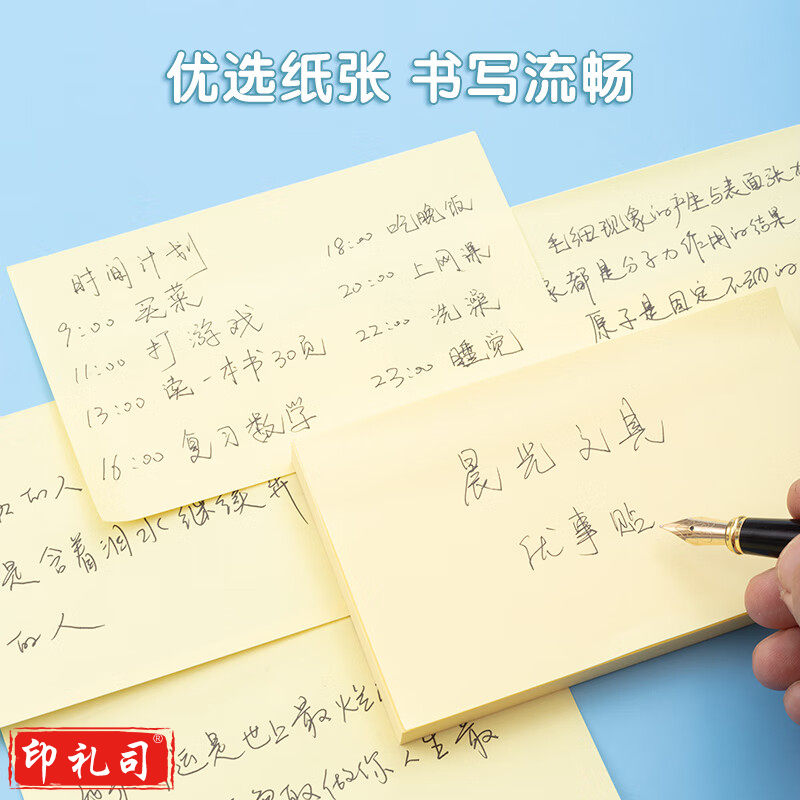 优选纸张 书写流畅
时间计划
9:00 买菜
11:00 打游戏
13:00 读一本书30页
16:00 复习数学
18:00 吃晚饭
20:00 上网课
22:00 洗澡
23:00 睡觉
毛细现象的产生与表面张力
都是分子力作用的结果
原子是固定不动的
晨光文具
优事贴
的人
是含着泪水继续奔
的人
是世上最
取做你人生最
印礼司®